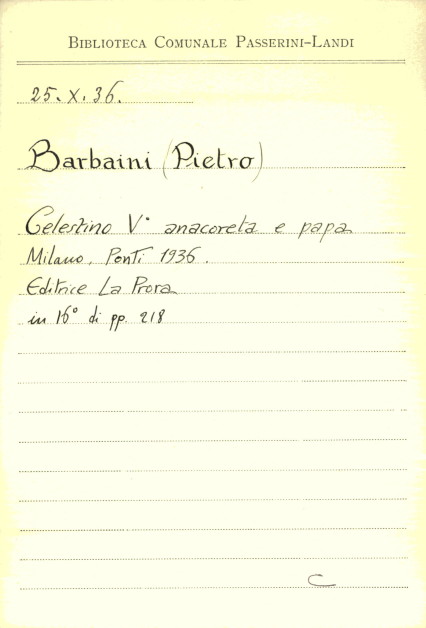 BIBLIOTECA COMUNALE PASSERINI-LANDI
25. X. 36.
Barbaini (Pietro)
Celestino V° anacoreta e papa
Milano, Ponti 1936.
Editrice La Prora
in 16° di pp. 218
C